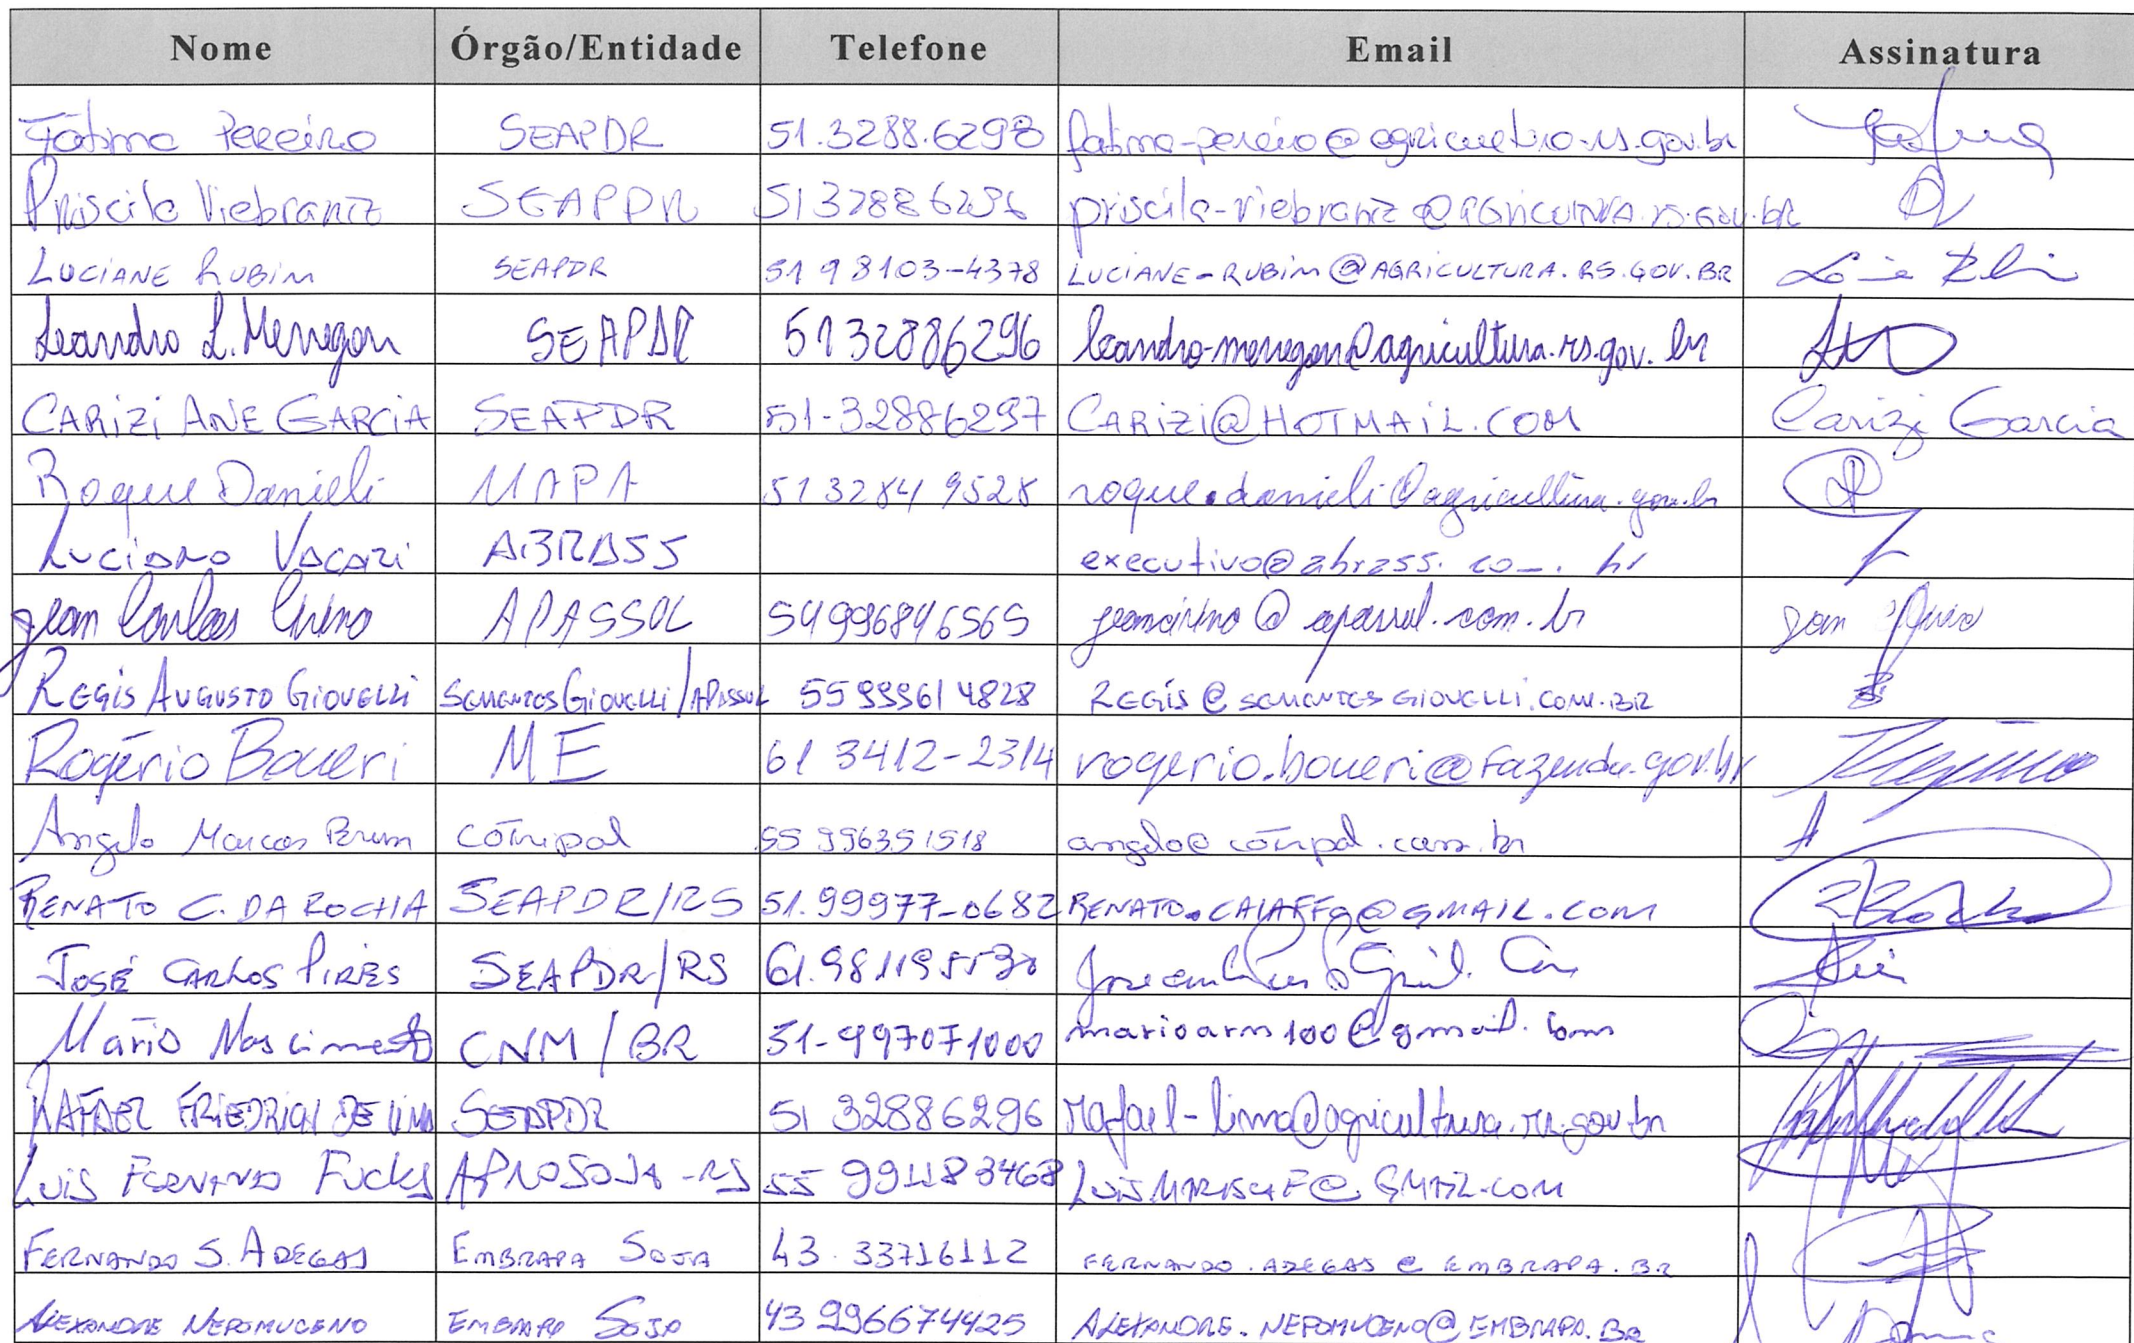 Nome Órgão/Entidade Telefone Email Assinatura
Fátima Pereira SEAPDR 51.3288.6298 fatima-pereira@agricultura.rs.gov.br
Priscila Viebrantz SEAPDR 5132886296 priscila-viebrantz@agricultura.rs.gov.br
LUCIANE RUBIM SEAPDR 51 98103-4378 LUCIANE-RUBIM@AGRICULTURA.RS.GOV.BR
Leandro L. Menegon SEAPDR 5132886296 leandro-menegon@agricultura.rs.gov.br
CARIZI ANE GARCIA SEAPDR 51-32886297 CARIZI@HOTMAIL.COM Carizi Garcia
Roque Danieli MAPA 51 3284 9528 roque.danieli@agricultura.gov.br
Luciano Vacari ABRASS executivo@abrass.com.br
Jean Carlos Cirino APASSUL 54996846565 jeancirino@apassul.com.br
REGIS AUGUSTO GIOVELLI SEMENTES GIOVELLI/APASSUL 55 999614828 REGIS@SEMENTESGIOVELLI.COM.BR
Rogério Boueri ME 61 3412-2314 rogerio.boueri@fazenda.gov.br
Angelo Marcos cotripal 55 996351518 angelo@cotripal.com.br
RENATO C. DA ROCHA SEAPDR/RS 51.99977-0682 RENATO.CAIAFFO@GMAIL.COM
JOSÉ CARLOS PIRES SEAPDR/RS
Mario Nascimento CNM/BR 51-997071000 marioarm100@gmail.com
RAFAEL FRIEDRICH DE LIMA SEAPDR 51 32886296 rafael-lima@agricultura.rs.gov.br
LUIS FERNANDO FUCKS APROSOJA-RS 55 991183468
FERNANDO S. ADEGAS EMBRAPA SOJA 43.33716112 FERNANDO.ADEGAS@EMBRAPA.BR
ALEXANDRE NEPOMUCENO EMBRAPA SOJA 43 996674425 ALEXANDRE.NEPOMUCENO@EMBRAPA.BR